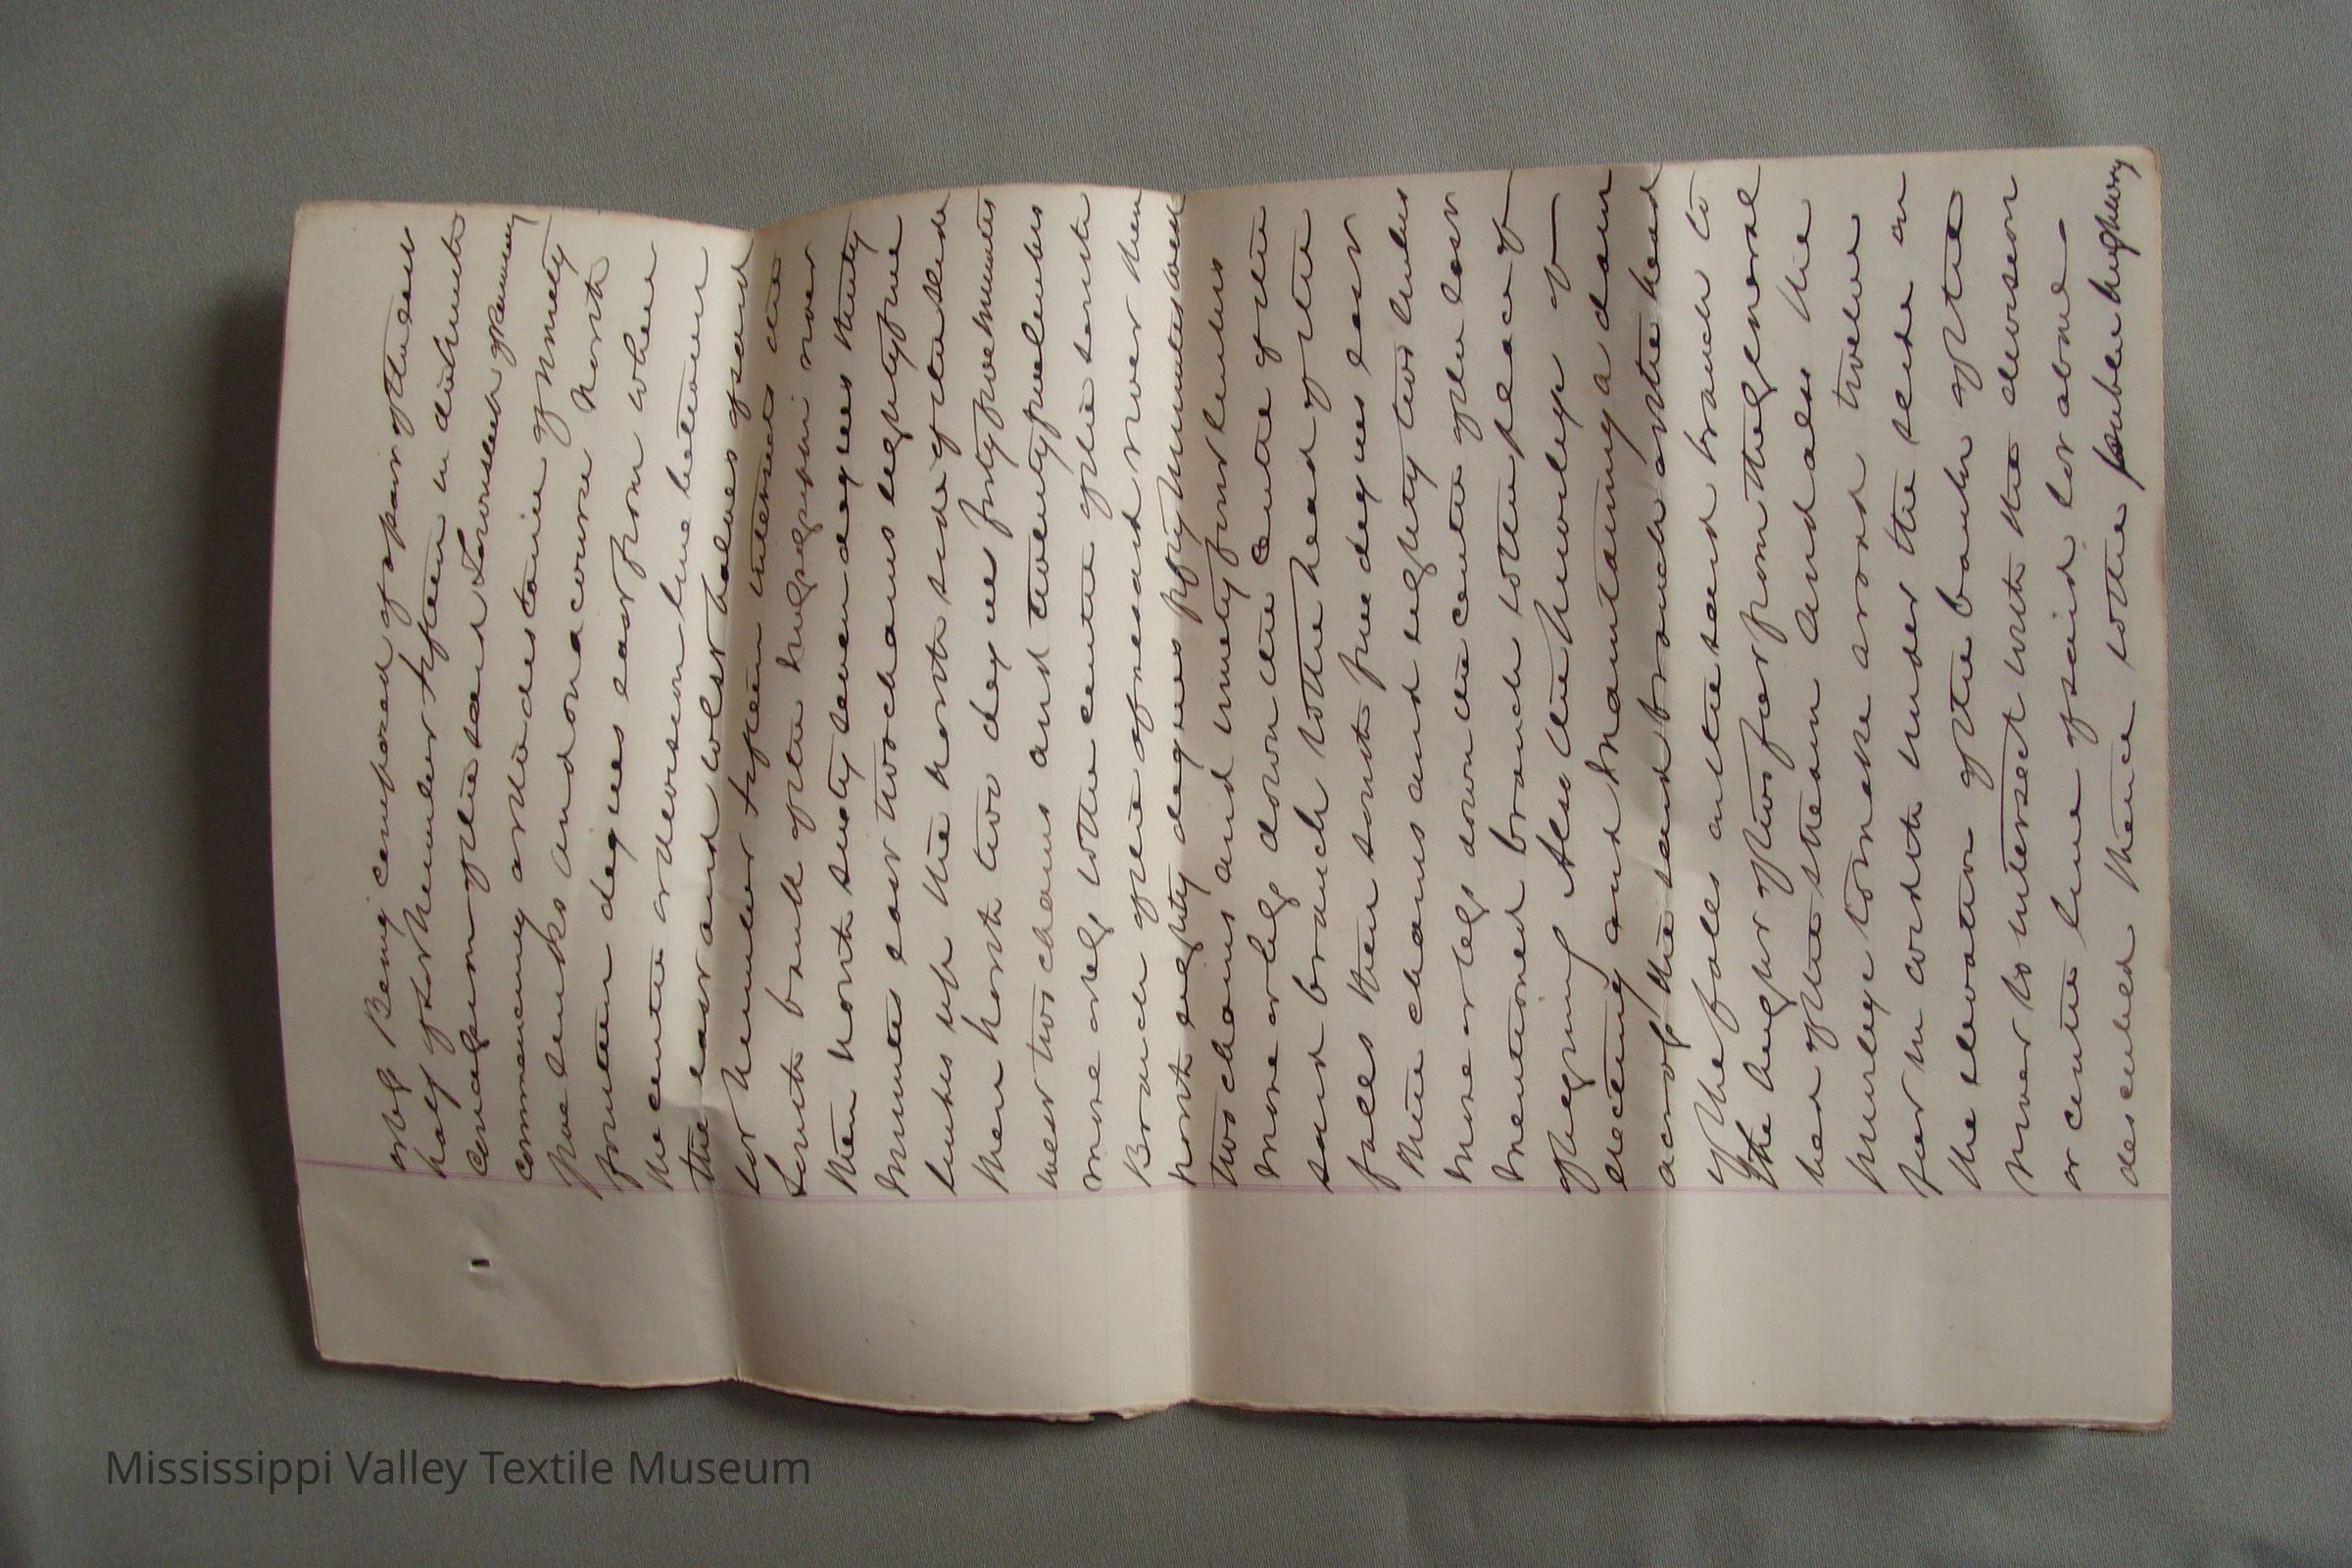 only Being composed of a part of the East
half of Lot Number fifteen in the Ninth
Concession of the said Township of Ramsay
commencing at the distance of Ninety
five links and on a course North
fourteen degrees east from where
the centre or division line between
the east and West halves of said
Lot Number fifteen intersects the
South bank of the Mississippi river
then North sixty seven degrees thirty
Minutes east two chains eighty five
links up the North side of the Slide
then North two degrees forty five minutes
West two chains and twenty five links
more or less to the centre of the South
Branch of the aforesaid river then
North eighty degrees fifty Minutes West
two chains and ninety four links
More or less down the centre of the
said branch to the head of the
falls then South five degrees east
Nine chains and eighty two links
More or less down the centre of the last
Mentioned branch to the place of
Beginning Also the privilege of
erecting and Maintaining a dam
across the said branch at the head
of the falls on the said branch to
the height of two feet from the general
bed of the stream And also the
privilege to make a road twelve
feet in width under the slide on
the elevation of the bank of the
river to intersect with the division
or centre line of said lot above
described thence to the public highway
Mississippi Valley Textile Museum